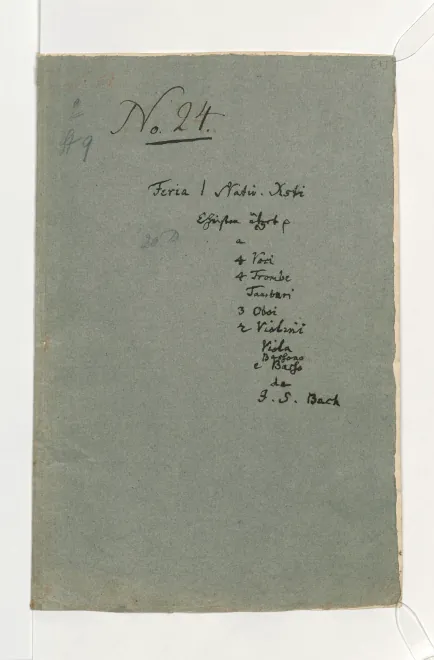 No. 24.
Feria 1 Nativ. Xsti
Christen
a
4 Voci
4 Trombe
Tamburi
3 Oboi
2 Violini
Viola
Bassono
e Basso
da
J. S. Bach